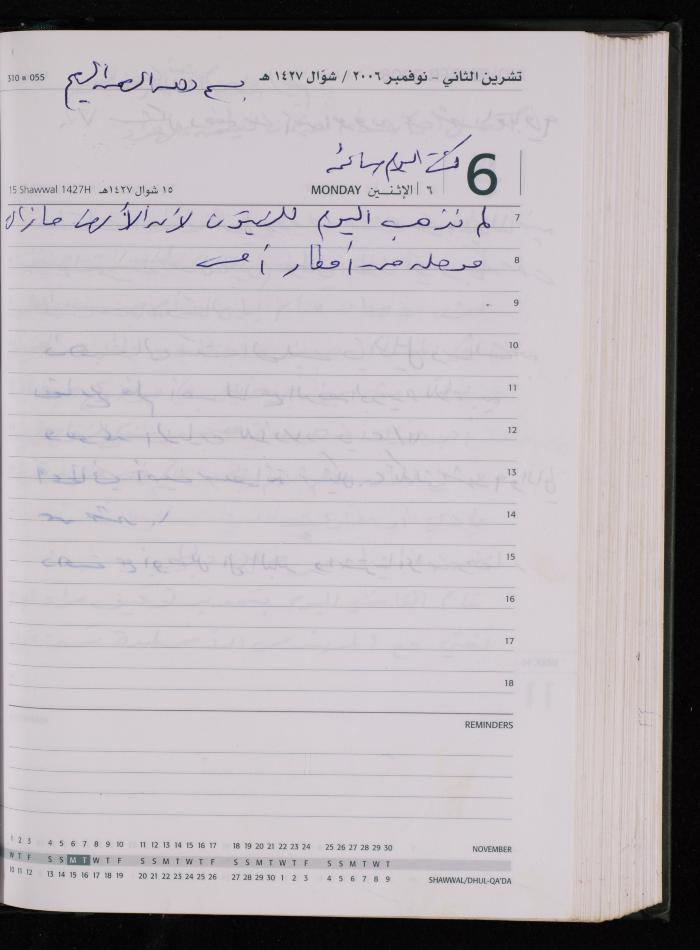 تشرين الثاني - نوفمبر ٢٠٠٦ / شوّال ١٤٢٧ هـ
بسم الله الرحمن الرحيم
310 055
كنت اليوم صائمة
6
٦ الإثنـــين MONDAY
١٥ شوال ١٤٢٧هـ 15 Shawwal 1427H
7 لم نذهب اليوم للزيتون لأن الأرض مازال
8 موحله من أمطار أمس
9
10
11
12
13
14
15
16
17
18
REMINDERS
1 2 3 4 5 6 7 8 9 10 11 12 13 14 15 16 17 18 19 20 21 22 23 24 25 26 27 28 29 30 NOVEMBER
W T F S S M T W T F S S M T W T F S S M T W T F S S M T W T
10 11 12 13 14 15 16 17 18 19 20 21 22 23 24 25 26 27 28 29 30 1 2 3 4 5 6 7 8 9 SHAWWAL/DHUL-QA'DA